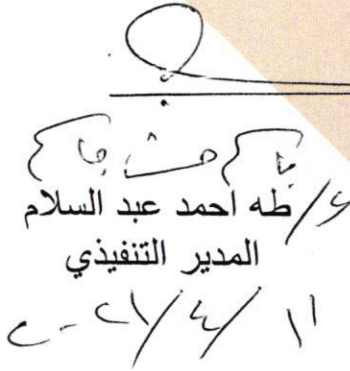 ع/ طه احمد عبد السلام
المدير التنفيذي
١١/٤/٢٠٢١